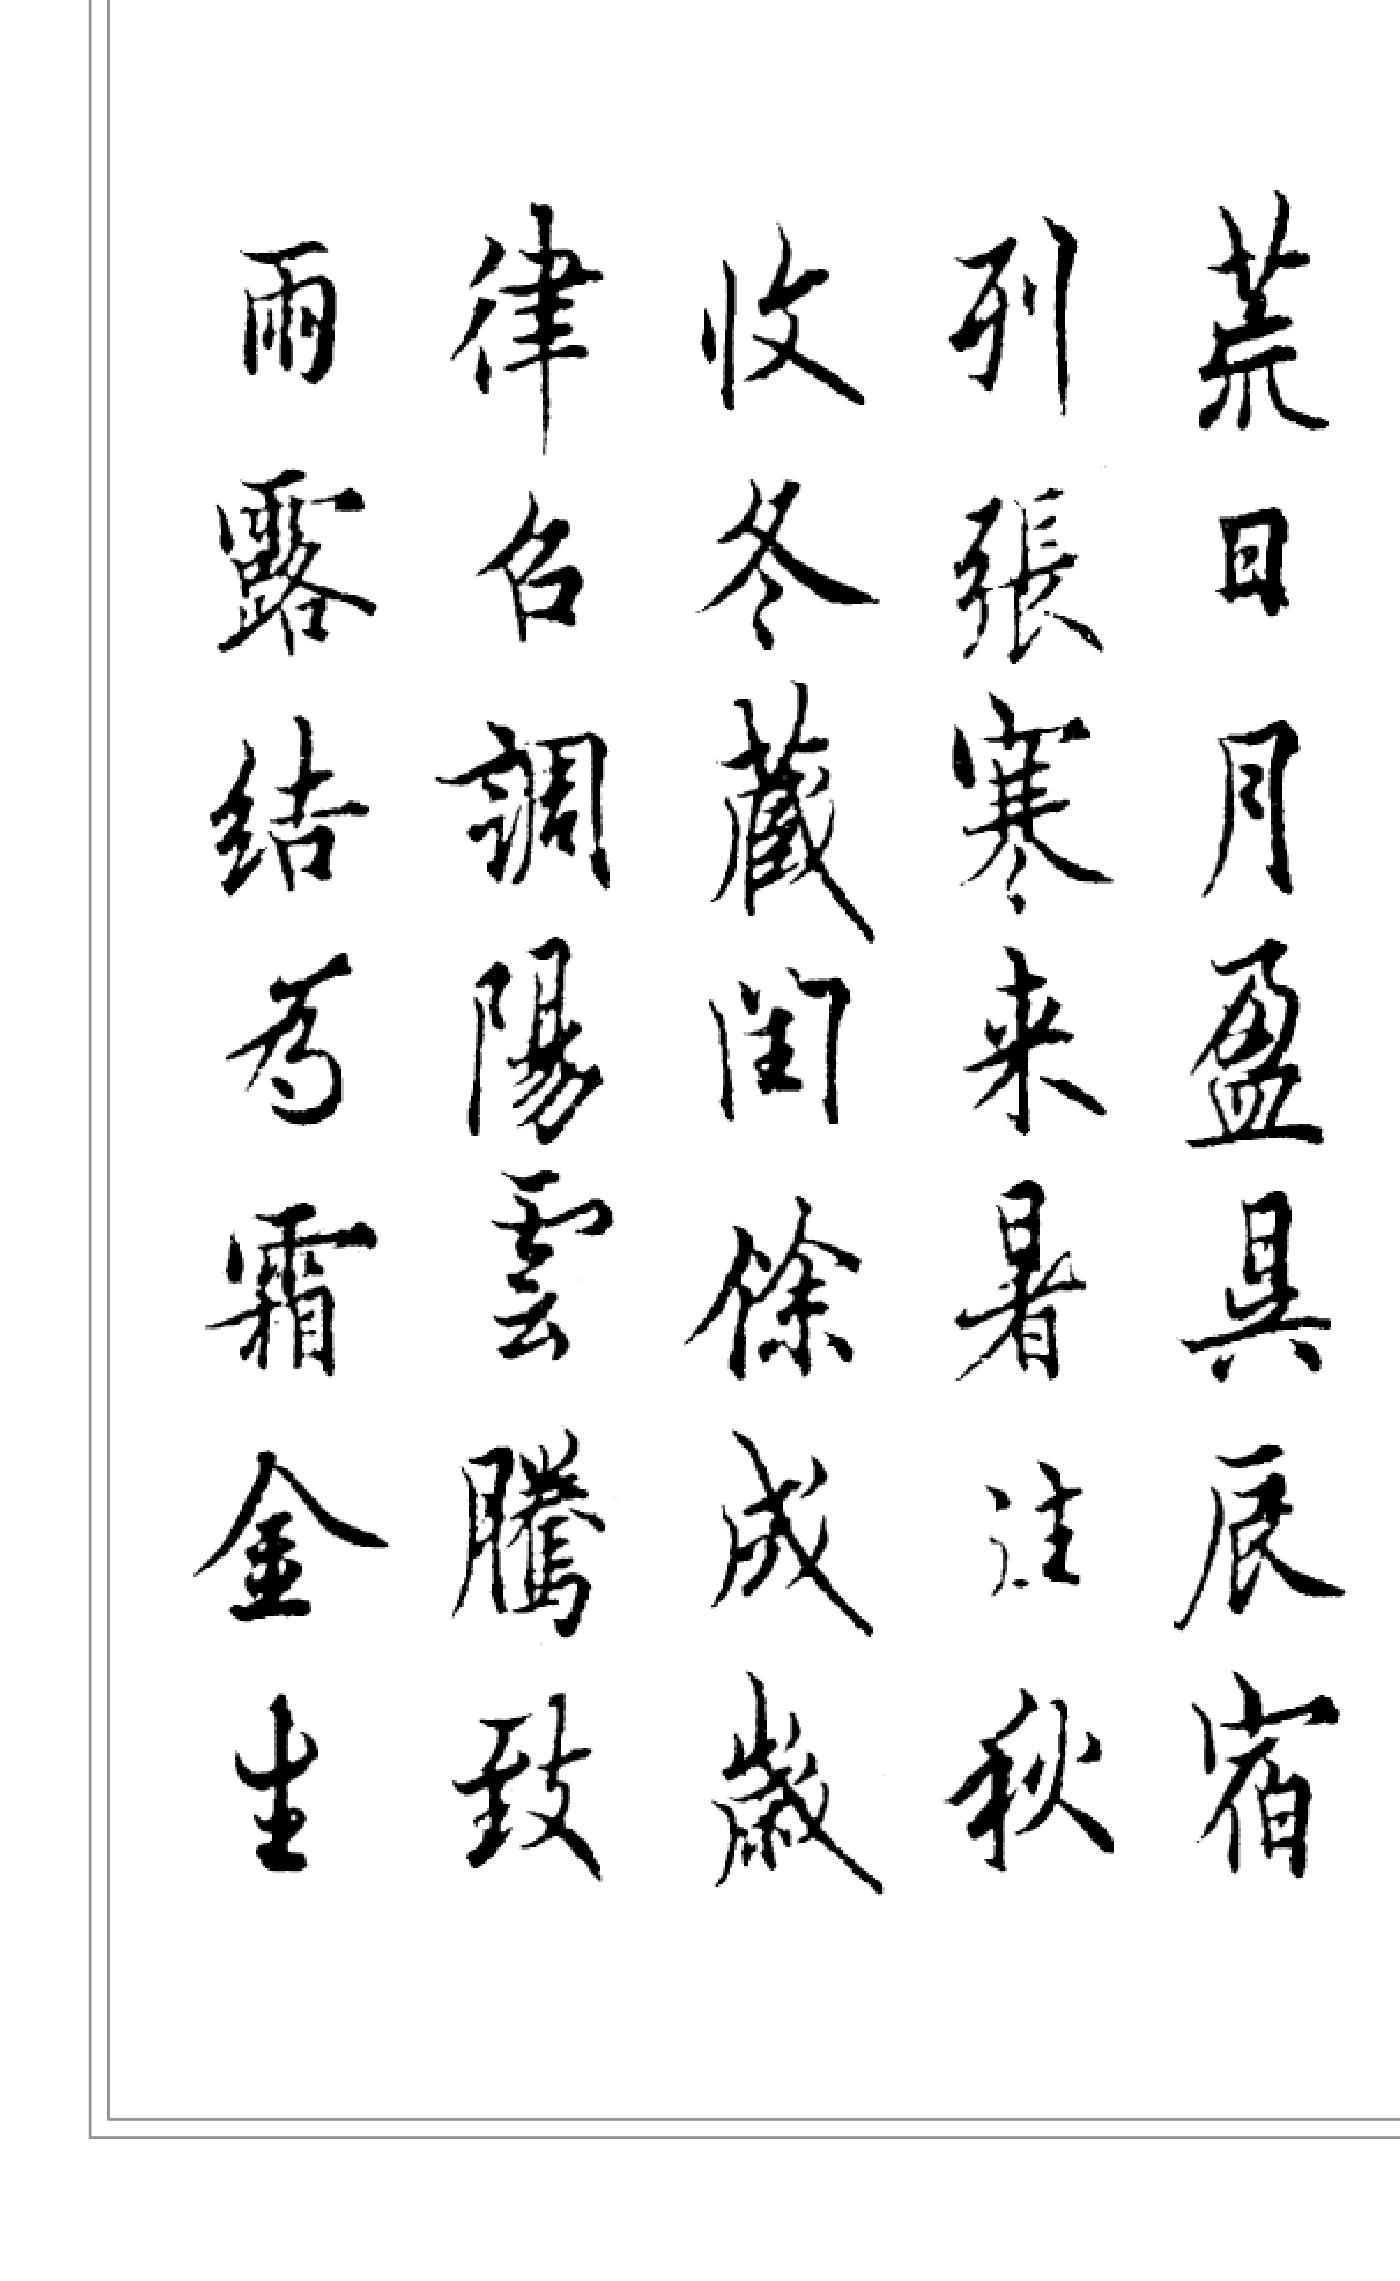 荒日月盈昃辰宿
列張寒来暑往秋
收冬蔵閏餘成歲
律召調陽雲騰致
雨露結為霜金生